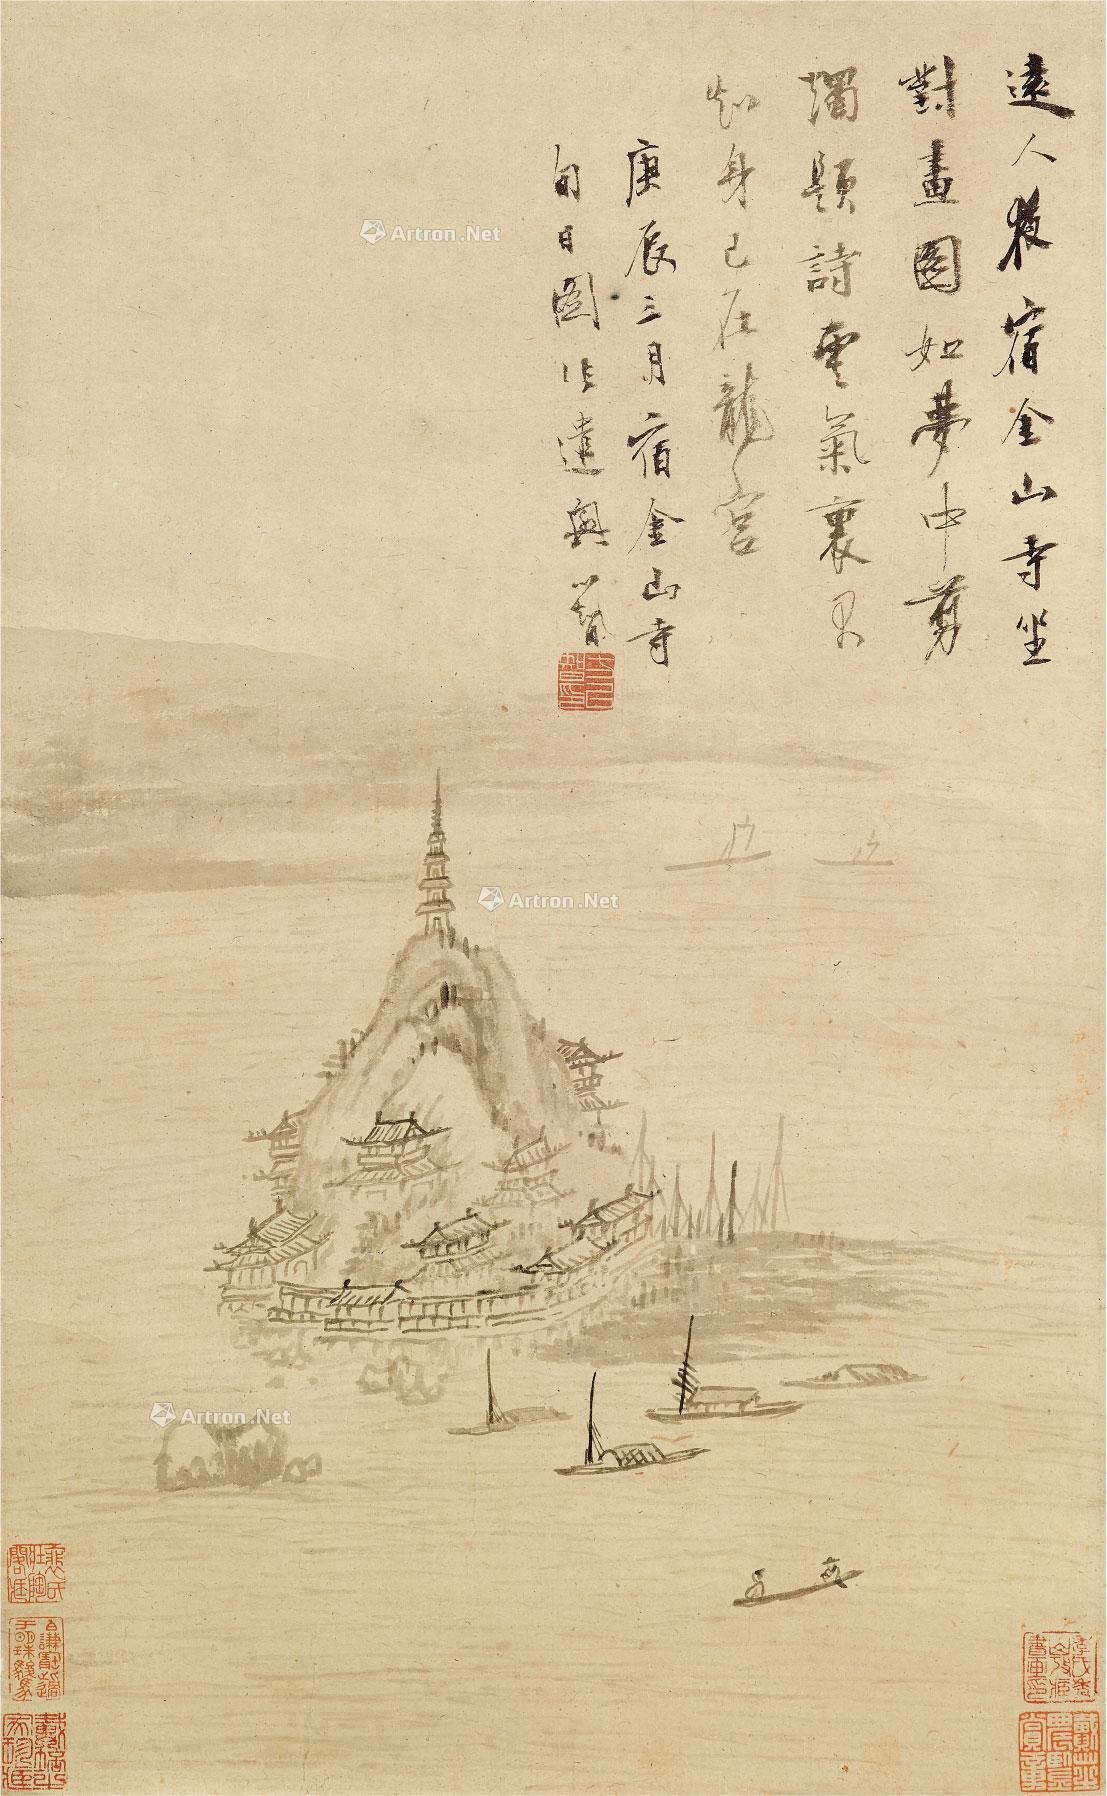 遠人夜宿金山寺坐
對畫圖如夢中剪
燭題詩雲氣裏不
知身已在龍宮
庚辰三月宿金山寺
旬日圖此遣興
Artron.Net
Artron.Net
Artron.Net